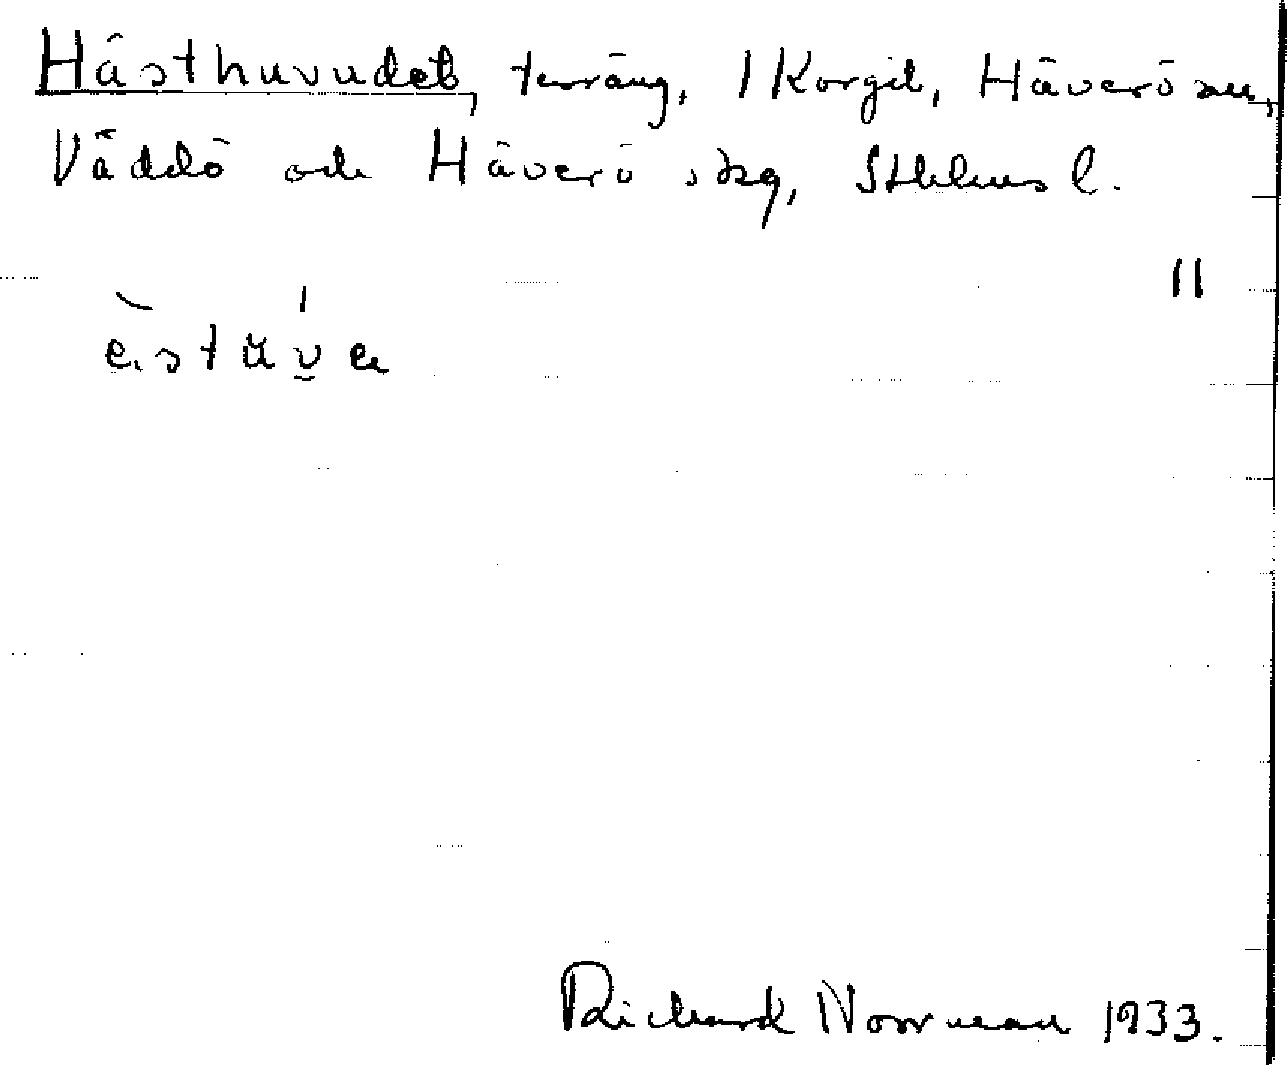 Hästhuvudet, terräng, 1 Korgil, Häverö sn,
Väddö och Häverö skg, Sthlms l.
11
èstǘvɐ
Richard Norrman 1933.